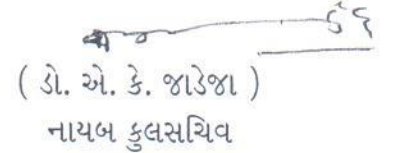 ( ડો. એ. કે. જાડેજા )
નાયબ કુલસચિવ